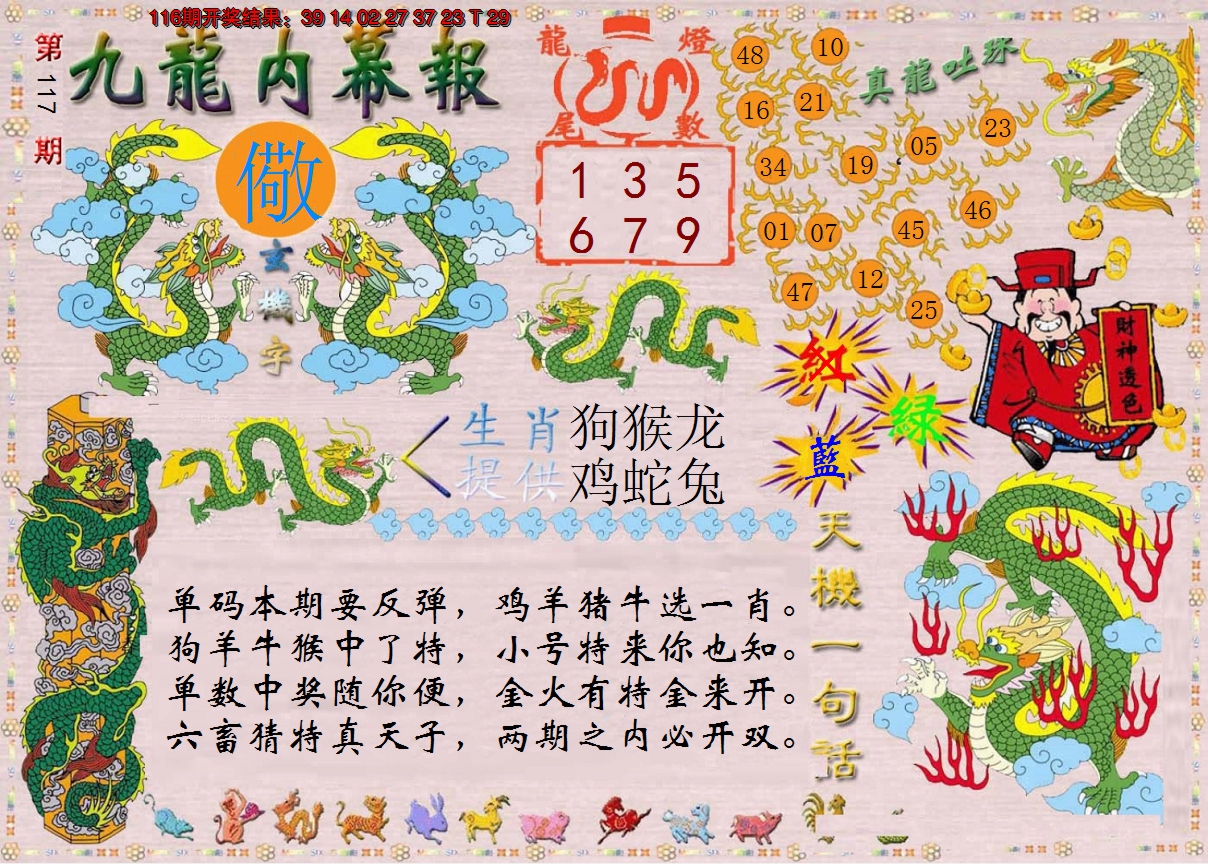 116期开奖结果：39 14 02 27 37 23 T 29
第117期
九龍内幕報
儆
玄機字
龍燈
尾數
1 3 5
6 7 9
真龍吐珠
48 10
16 21
05 23
34 19
46
01 07 45
12
47 25
財神透色
紅
綠
藍
生肖 狗猴龙
提供 鸡蛇兔
天機一句話
单码本期要反弹，鸡羊猪牛选一肖。
狗羊牛猴中了特，小号特来你也知。
单数中奖随你便，金火有特金来开。
六畜猜特真天子，两期之内必开双。